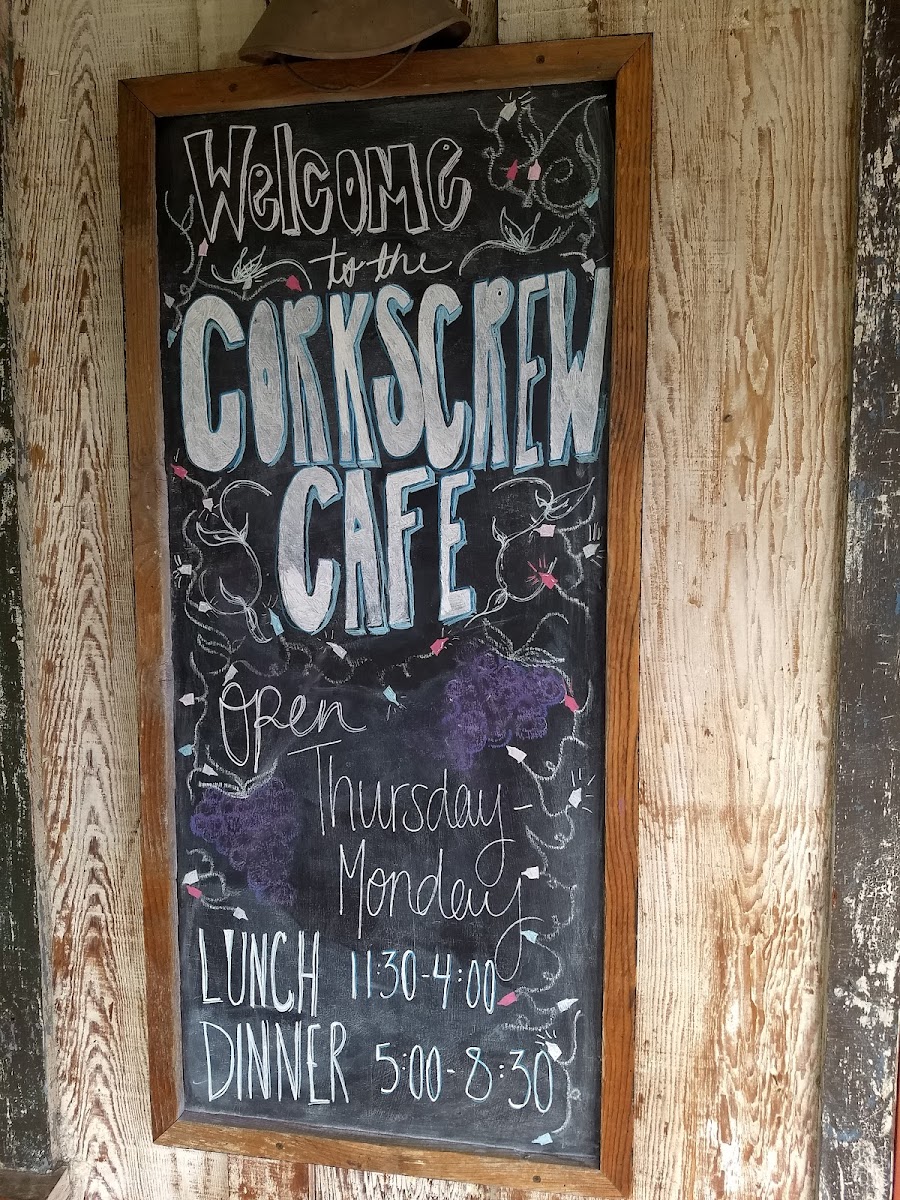 Welcome
to the
CORKSCREW
CAFE
Open
Thursday-
Monday
LUNCH 11:30-4:00
DINNER 5:00-8:30